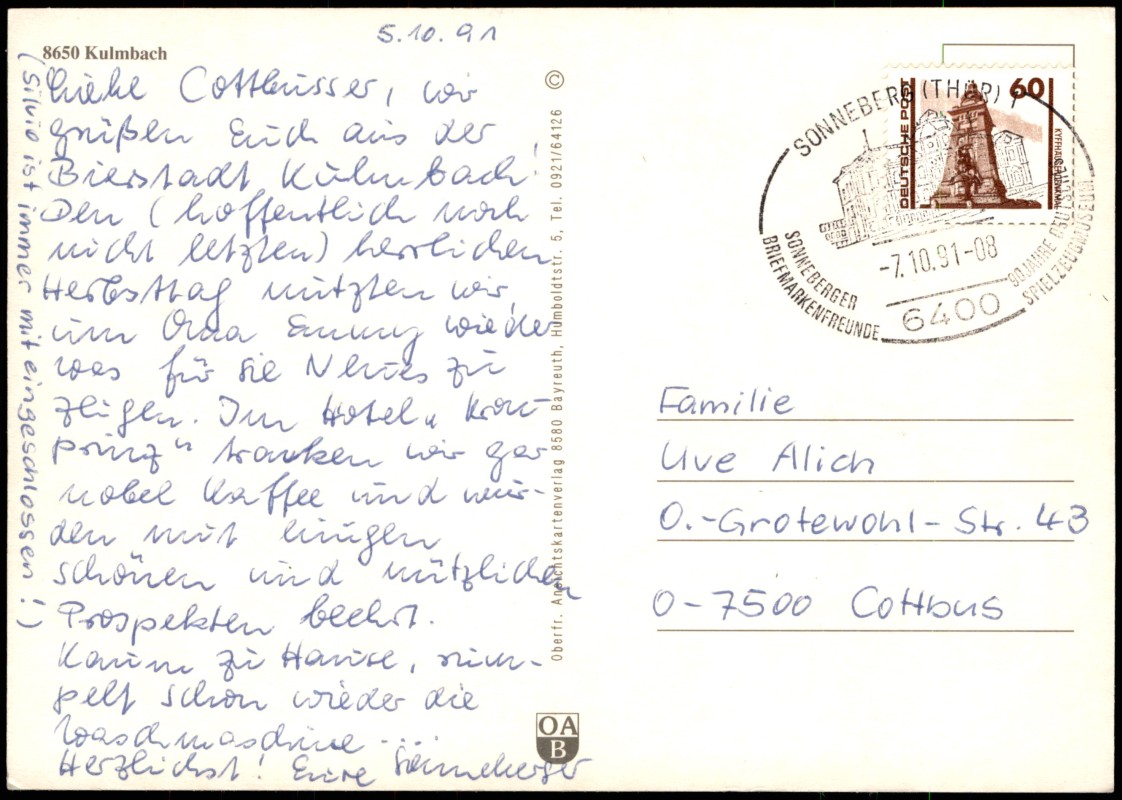 5.10.91
8650 Kulmbach
Liebe Cottbusser, wir
grüßen Euch aus der
Bierstadt Kulmbach!
Den (hoffentlich noch
nicht letzten) herrlichen
Herbsttag nutzten wir,
um Oma Emmy wieder
was für sie Neues zu
zeigen. Im Hotel „Kron-
prinz" tranken wir gar
nobel Kaffee und wur-
den mit einigen
schönen und nützlichen
Prospekten beehrt.
Kaum zu Hause, rum-
pelt schon wieder die
Waschmaschine ....
Herzlichst! Eure Sonneberger
(Silvio ist immer mit eingeschlossen!)
©
Oberfr. Ansichtskartenverlag 8580 Bayreuth, Humboldtstr. 5, Tel. 0921/64126
OA
B
DEUTSCHE POST
60
KYFFHÄUSER-DENKMAL
SONNEBERG (THÜR) 1
-7.10.91-08
SONNEBERGER
BRIEFMARKENFREUNDE
6400
90 JAHRE DEUTSCHES
SPIELZEUGMUSEUM
Familie
Uve Alich
O.-Grotewohl-Str. 43
O-7500 Cottbus